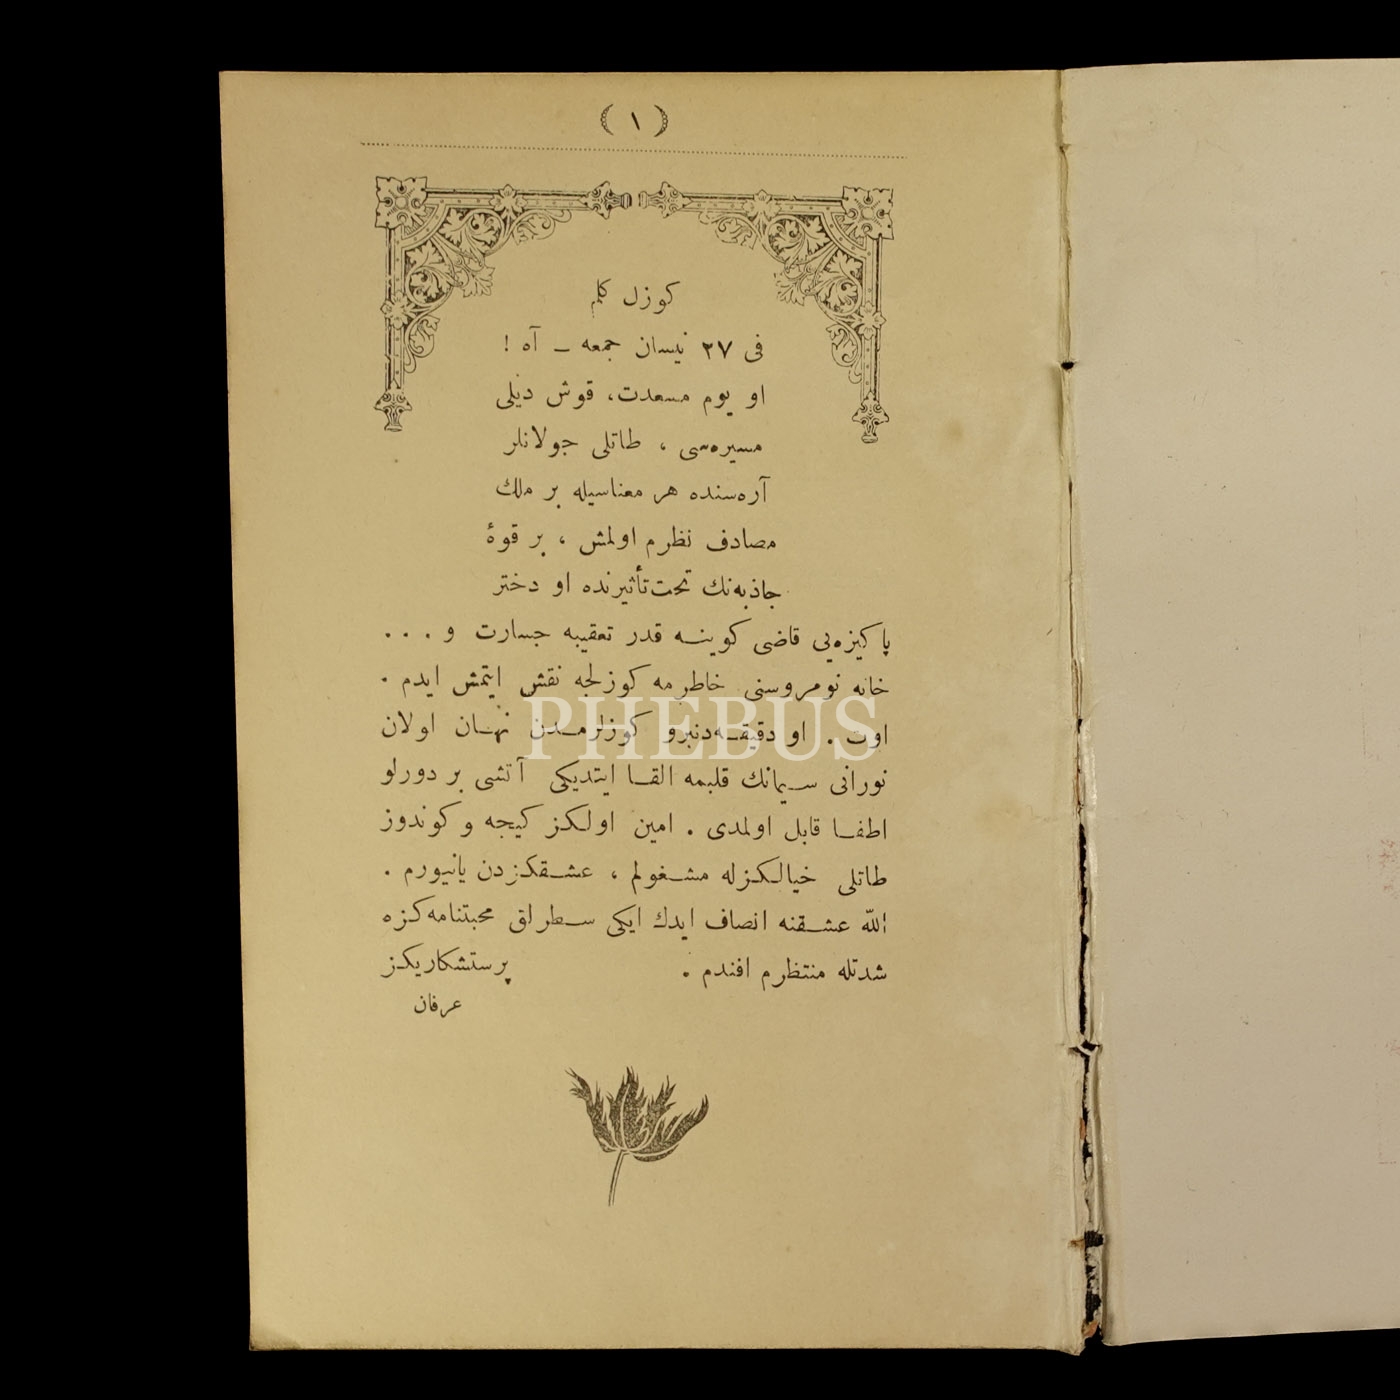 ( ١ )
كوزل كلم
فى ٢٧ نيسان جمعه ــ آه !
او يوم مسعدت، قوش ديلى
مسيره‌سى ، طاتلى جولانلر
آره‌سنده هر معناسيله بر ملك
مصادف نظرم اولمش ، بر قوهٔ
جاذبه‌نك تحت‌تأثيرنده او دختر
پاكيزه‌يى قاضى كوينه قدر تعقيبه جسارت و . . .
خانه نومروسنى خاطرمه كوزلجه نقش ايتمش ايدم .
اوت . او دقيقه‌دنبرو كوزلرمدن نهان اولان
نورانى سيمانك قلبمه القا ايتديكى آتشى بر دورلو
اطفا قابل اولمدى . امين اولكز كيجه و كوندوز
طاتلى خيالكزله مشغولم ، عشقكزدن يانيورم .
الله عشقنه انصاف ايدك ايكى سطرلق محبتنامه‌كزه
شدتله منتظرم افندم . پرستشكاريكز
عرفان
PHEBUS